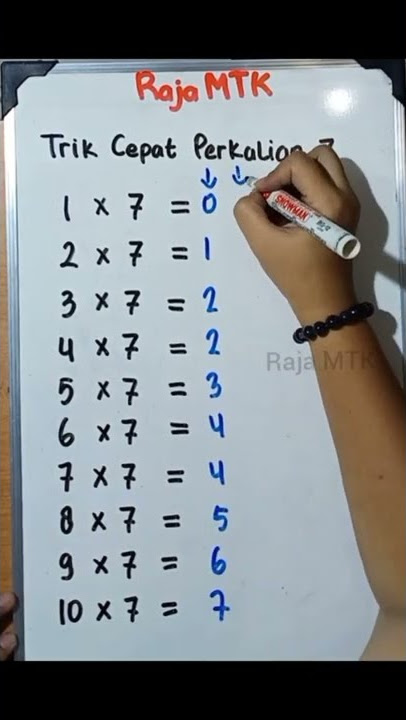 Raja MTK
Trik Cepat Perkalian 7
1 x 7 = 0
2 x 7 = 1
3 x 7 = 2
4 x 7 = 2
5 x 7 = 3
6 x 7 = 4
7 x 7 = 4
8 x 7 = 5
9 x 7 = 6
10 x 7 = 7
SNOWMAN
Raja MTK